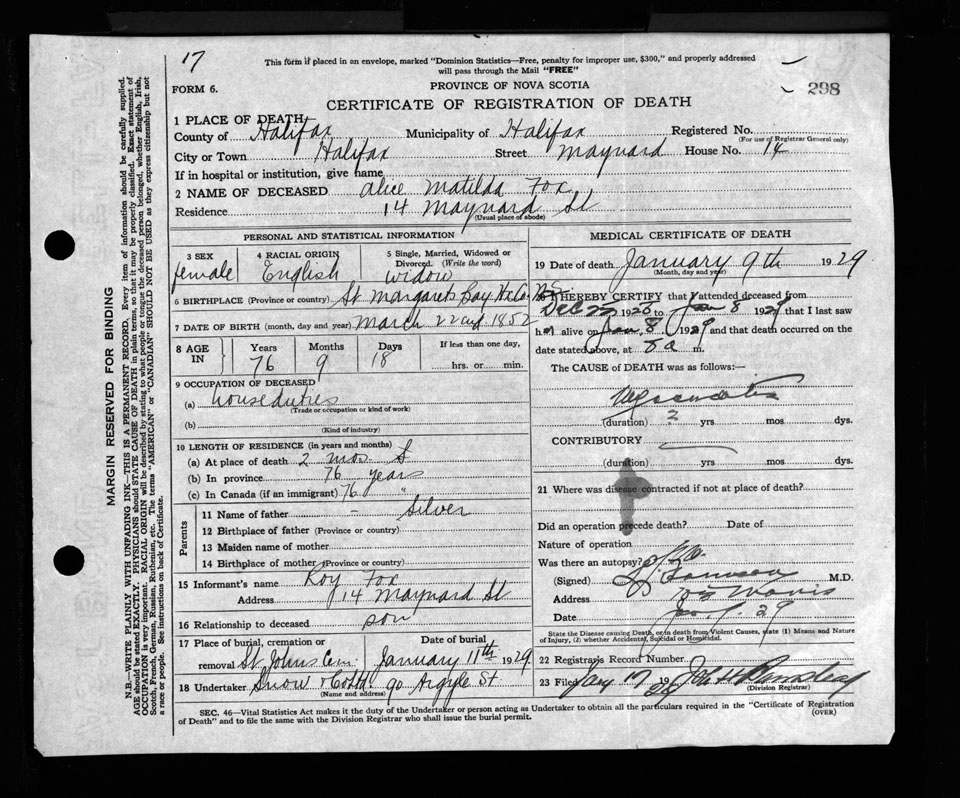 17
This form if placed in an envelope, marked "Dominion Statistics—Free, penalty for improper use, $300," and properly addressed
will pass through the Mail "FREE"
298
FORM 6.
PROVINCE OF NOVA SCOTIA
CERTIFICATE OF REGISTRATION OF DEATH
1 PLACE OF DEATH
County of Halifax Municipality of Halifax Registered No.
(For use of Registrar General only)
City or Town Halifax Street Maynard House No. 14
If in hospital or institution, give name
2 NAME OF DECEASED Alice Matilda Fox
Residence 14 Maynard St
(Usual place of abode)
PERSONAL AND STATISTICAL INFORMATION
3 SEX 4 RACIAL ORIGIN 5 Single, Married, Widowed or
Divorced. (Write the word)
female English widow
6 BIRTHPLACE (Province or country) St Margarets Bay Hx Co NS
7 DATE OF BIRTH (month, day and year) March 22nd 1852
8 AGE IN Years Months Days If less than one day,
76 9 18 hrs. or min.
9 OCCUPATION OF DECEASED
(a) house duties
(Trade or occupation or kind of work)
(b)
(Kind of industry)
10 LENGTH OF RESIDENCE (in years and months)
(a) At place of death 2 mos
(b) In province 76 years
(c) In Canada (if an immigrant) 76 "
Parents
11 Name of father - Silver
12 Birthplace of father (Province or country)
13 Maiden name of mother
14 Birthplace of mother (Province or country)
15 Informant's name Roy Fox
Address 14 Maynard St
16 Relationship to deceased son
17 Place of burial, cremation or Date of burial
removal St Johns Cem. January 11th 1929
18 Undertaker Snow & Co Ltd. 90 Argyle St
(Name and address)
MEDICAL CERTIFICATE OF DEATH
19 Date of death January 9th 1929
(Month, day and year)
20 I HEREBY CERTIFY that I attended deceased from
Dec 1928 to Jan 8 1929 that I last saw
her alive on Jan. 8 1929 and that death occurred on the
date stated above, at 8 a m.
The CAUSE of DEATH was as follows:—
(duration) 2 yrs mos dys.
CONTRIBUTORY
(duration) yrs mos dys.
21 Where was disease contracted if not at place of death?
Did an operation precede death? Date of
Nature of operation
Was there an autopsy?
(Signed) M.D.
Address
Date Jan 9. 29
State the Disease causing Death, or in death from Violent Causes, state (1) Means and Nature
of Injury, (2) whether Accidental, Suicidal or Homicidal.
22 Registrar's Record Number
23 Filed Jany 17 1929 John H Barnstead
(Division Registrar)
SEC. 46—Vital Statistics Act makes it the duty of the Undertaker or person acting as Undertaker to obtain all the particulars required in the "Certificate of Registration
of Death" and to file the same with the Division Registrar who shall issue the burial permit.
(OVER)
MARGIN RESERVED FOR BINDING
N.B.—WRITE PLAINLY WITH UNFADING INK—THIS IS A PERMANENT RECORD. Every item of information should be carefully supplied.
AGE should be stated EXACTLY. PHYSICIANS should STATE CAUSE OF DEATH in plain terms, so that it may be properly classified. Exact statement of
OCCUPATION is very important. RACIAL ORIGIN will be described by stating to what people or tongue the deceased person belonged, whether English, Irish,
Scotch, French, German, Russian, Ruthenian, etc. The terms "AMERICAN" or "CANADIAN" SHOULD NOT BE USED as they express citizenship but not
a race or people. See instructions on back of Certificate.